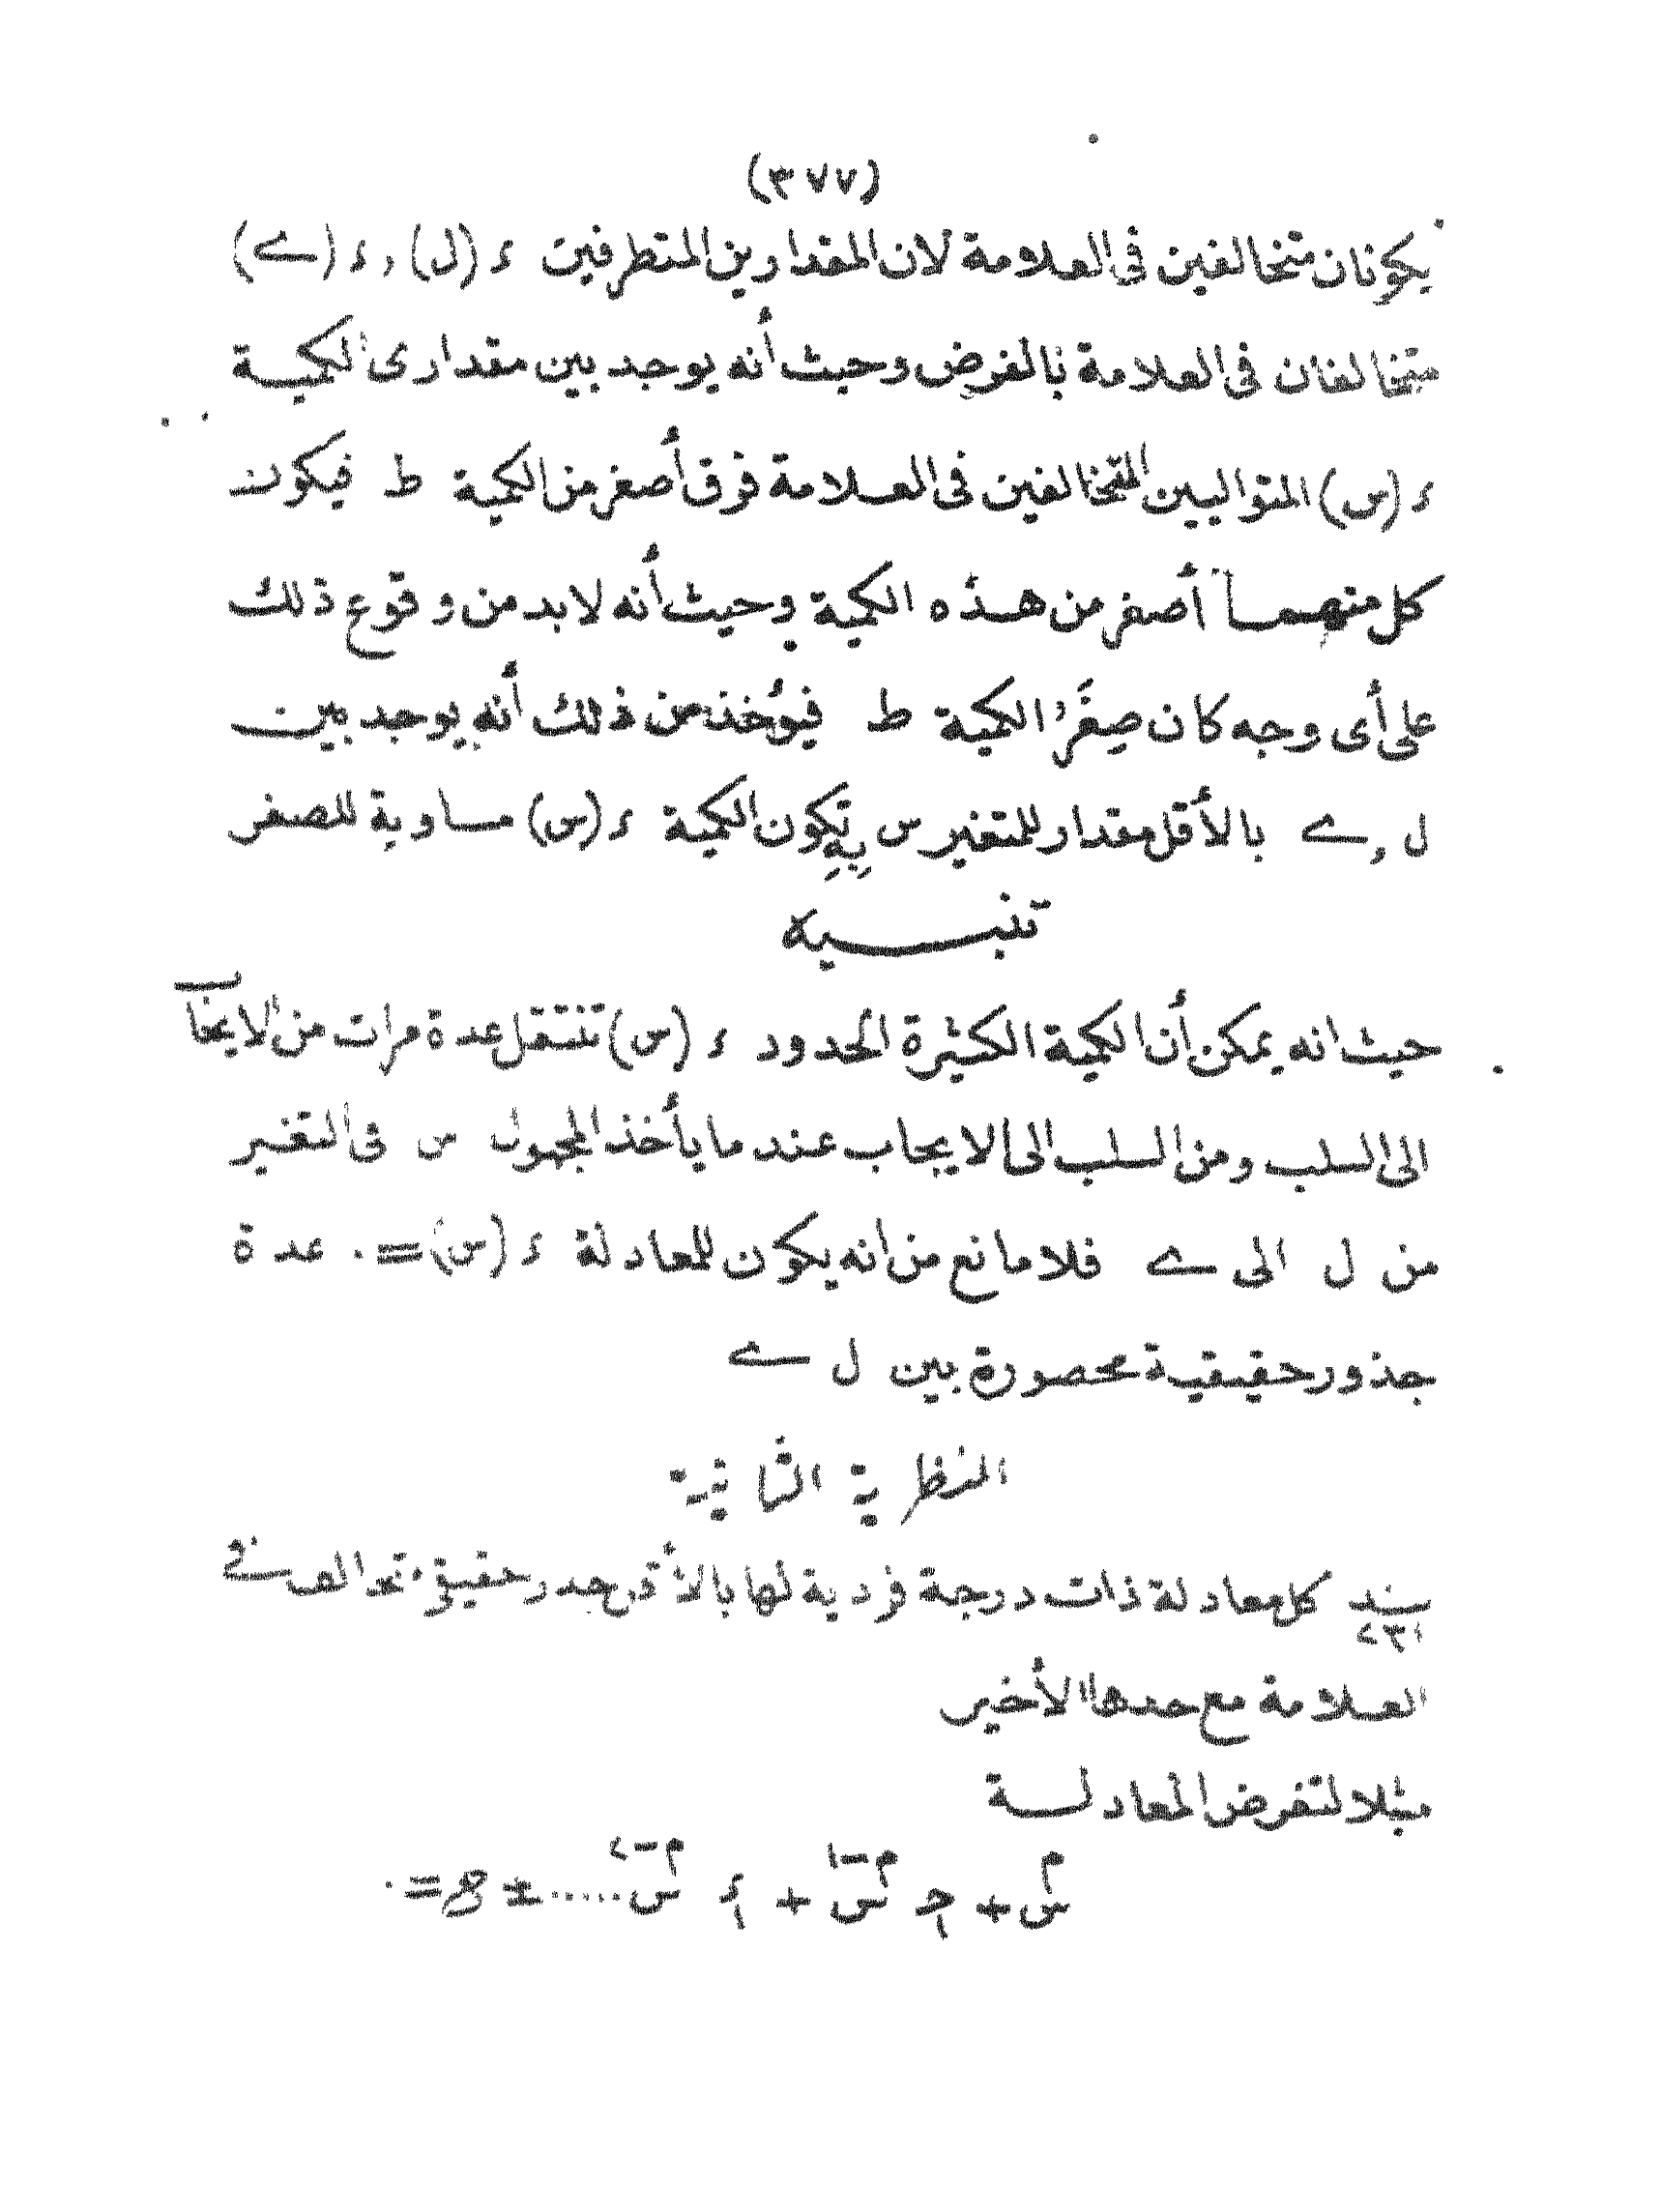 (٣٧٧)
يكونان متخالفين فى العلامة لان المقدارين المتطرفين ء (ل) , ء (ے)
متخالفان فى العلامة بالفرض وحيث أنه يوجد بين مقدارى الكمية
ء (س) المتواليين المتخالفين فى العلامة فرق أصغر من الكمية ط فيكون
كل منهما أصغر من هذه الكمية وحيث أنه لابد من وقوع ذلك
على أى وجه كان صِغَرُ الكمية ط فيؤخذ من ذلك أنه يوجد بين
ل , ے بالأقل مقدار للمتغير س بِهِ تكون الكمية ء (س) مساوية للصفر
تنبيه
حيث انه يمكن أن الكمية الكثيرة الحدود ء (س) تنتقل عدة مرات من الايجاب
الى السلب ومن السلب الى الايجاب عند ما يأخذ المجهول س فى التغير
من ل الى ے فلا مانع من انه يكون للمعادلة ء (س) = ٠ عدة
جذور حقيقية محصورة بين ل ے
النظرية الثانية
بند كل معادلة ذات درجة فردية لها بالأقل جدر حقيقى متحالف فى
٢٣١
العلامة مع حدها الأخير
مثلا لنفرض المعادلة
س^م + حـ١ س^(م-١) + ء١ س^(م-٢) ..... ± ع = ٠